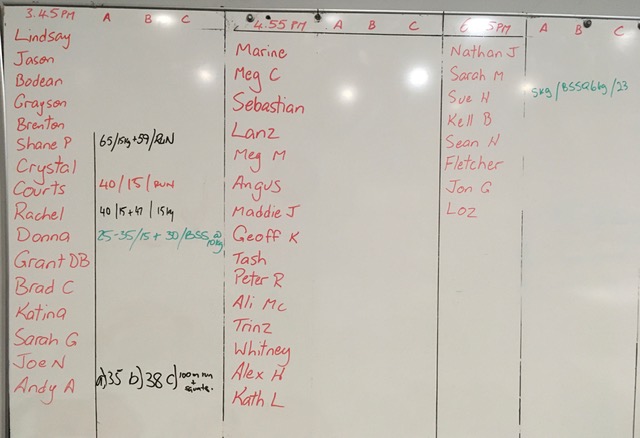 3.45PM A B C
Lindsay
Jason
Bodean
Grayson
Brenton
Shane P 65/15kg+59/RUN
Crystal
Courts 40/15/RUN
Rachel 40/15+47/15kg
Donna 25-35/15+30/BSS@10kg
Grant DB
Brad C
Katina
Sarah G
Joe N
Andy A a)35 b)38 c)100m run + squats.
4.55PM A B C
Marine
Meg C
Sebastian
Lanz
Meg M
Angus
Maddie J
Geoff K
Tash
Peter R
Ali Mc
Trinz
Whitney
Alex H
Kath L
PM A B C
Nathan J
Sarah M
Sue H 5kg/BSS@6kg/23
Kell B
Sean H
Fletcher
Jon G
Loz